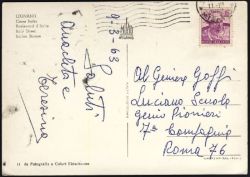 LIGNANO
Corso Italia
Boulevard d'Italie
Italy Street
Italien Strasse
9-3-63
Saluti
Analita e
Teresina
Al Geniere Goffi
Luciano Scuola
genio Pionieri
7ª Compagnia
Roma 76
da Fotografia a Colori